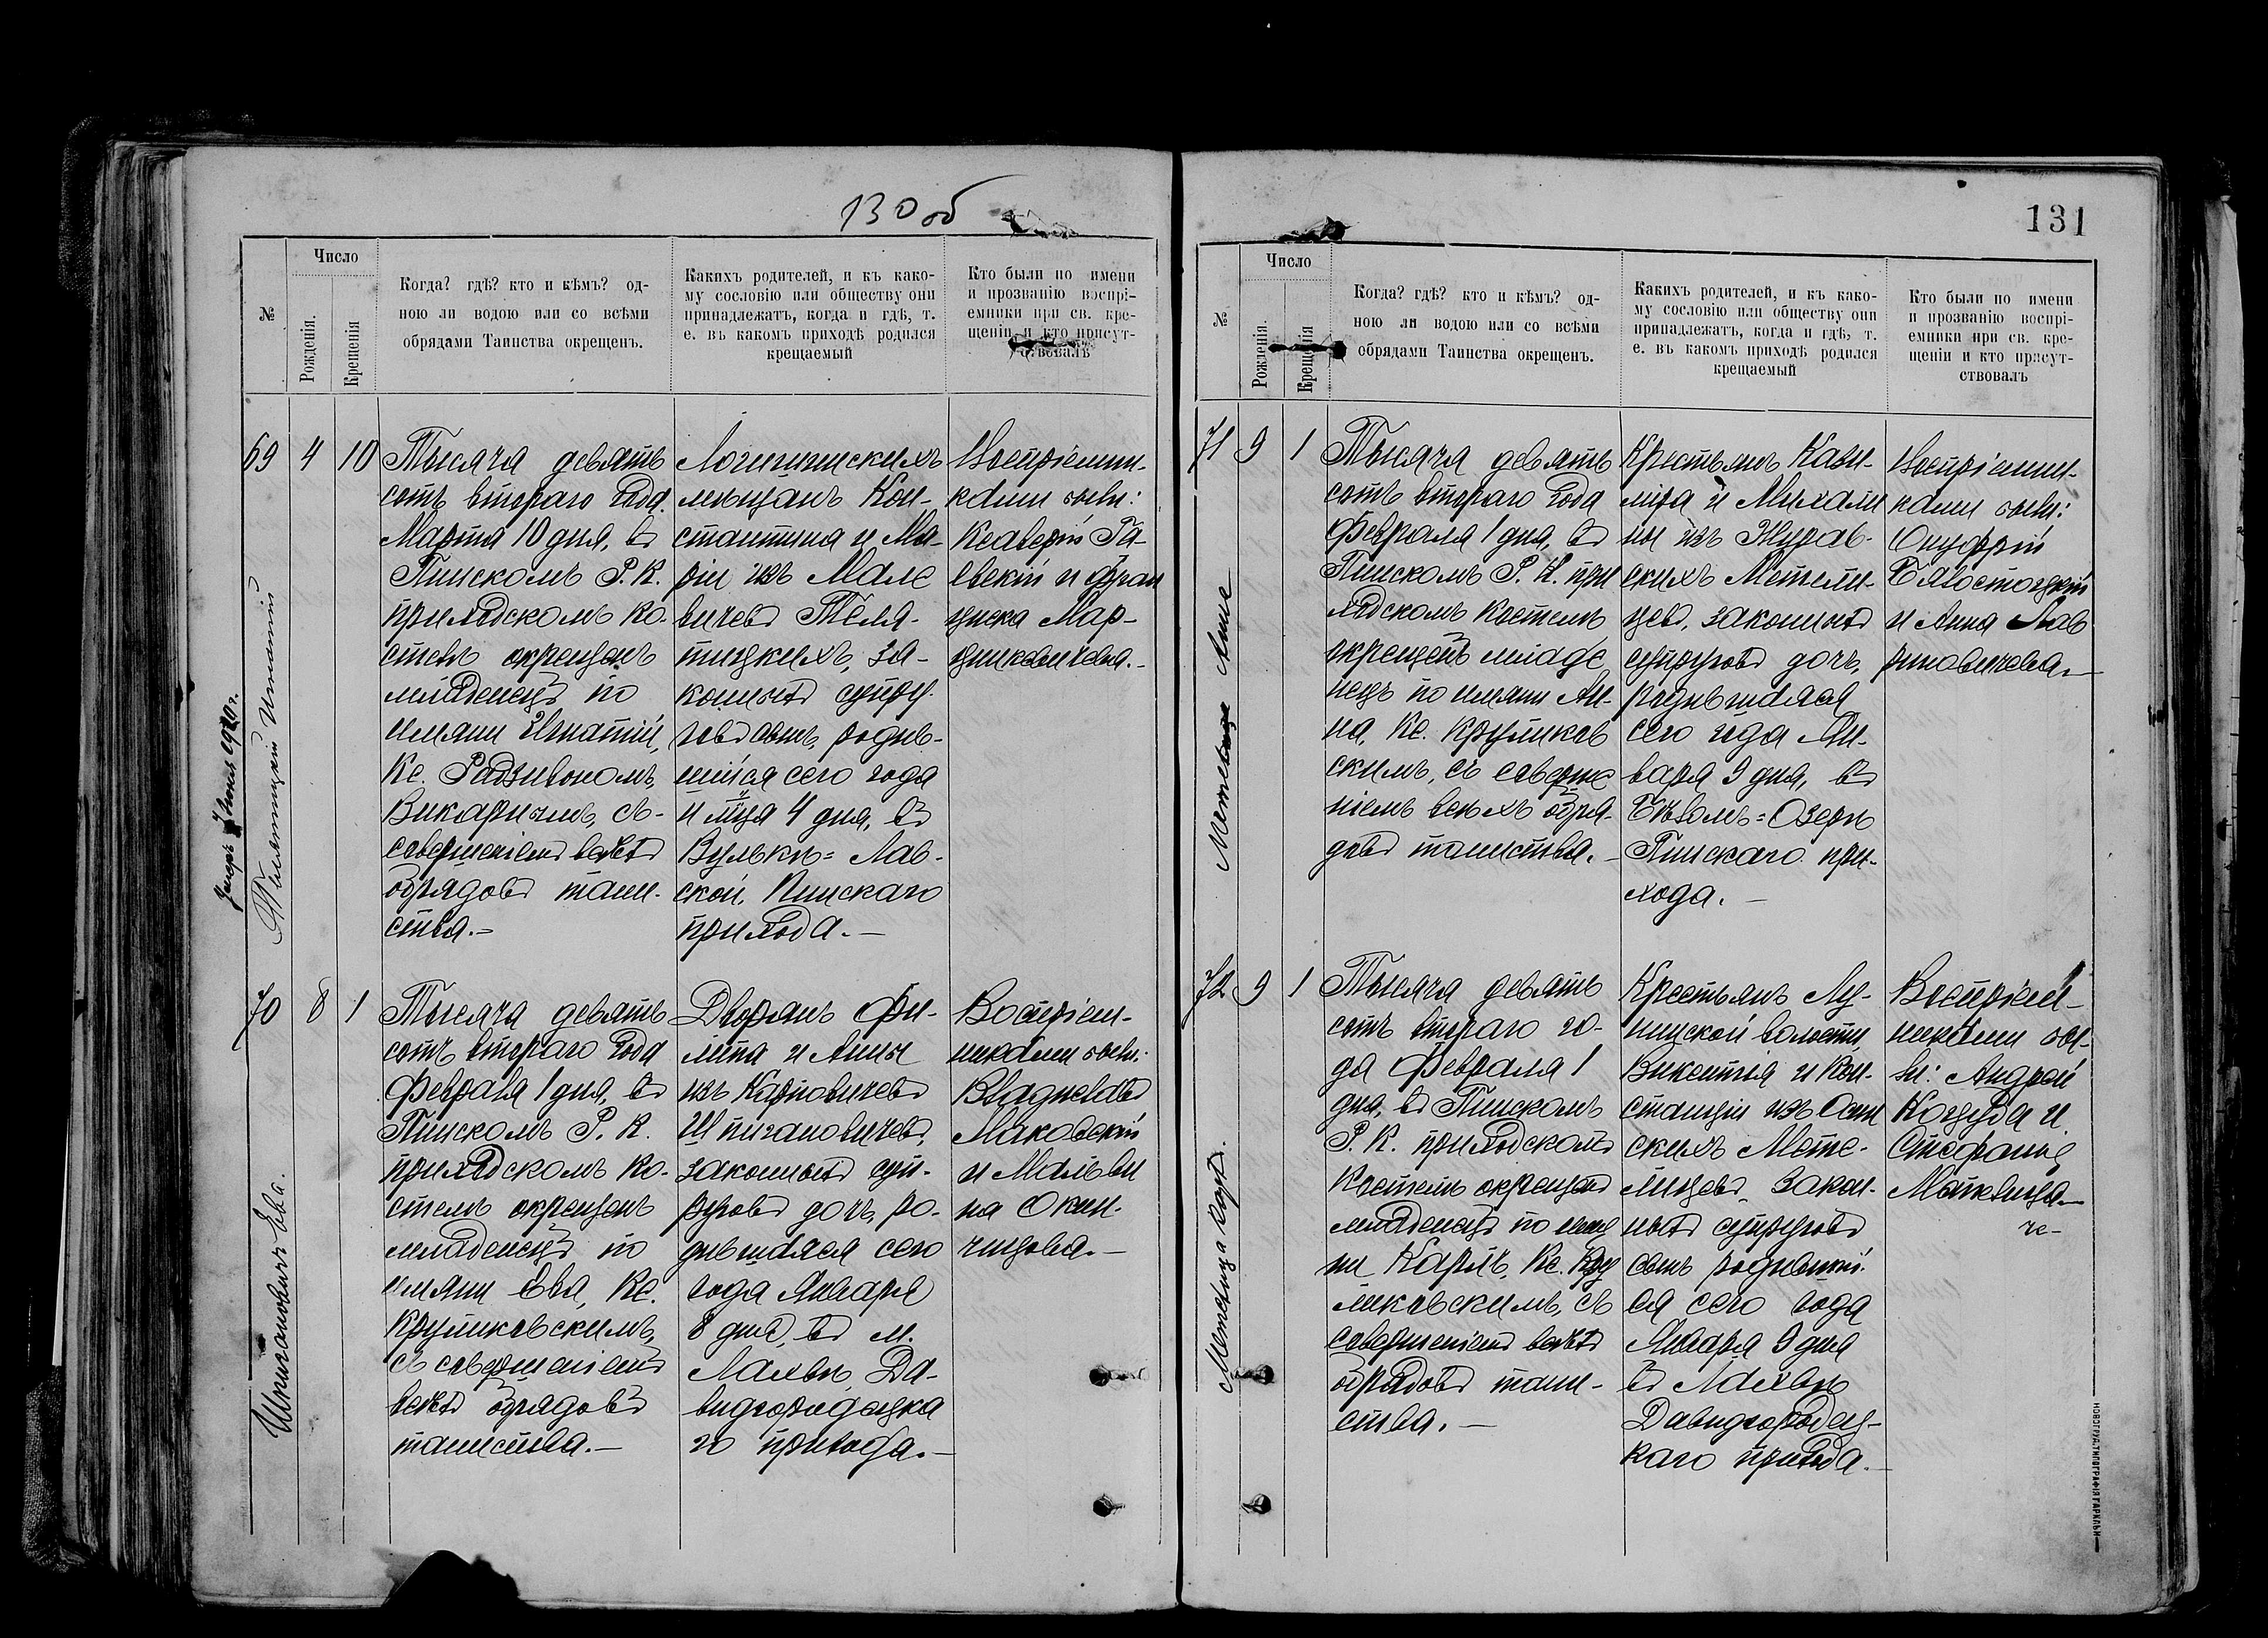 130 об
№
Число
Рожденія.
Крещенія
Когда? гдѣ? кто и кѣмъ? од-
ною ли водою или со всѣми
обрядами Таинства окрещенъ.
Какихъ родителей, и къ како-
му сословію или обществу они
принадлежатъ, когда и гдѣ, т.
е. въ какомъ приходѣ родился
крещаемый
Кто были по имени
и прозванію воспрі-
емники при св. кре-
щеніи и кто присут-
ствовалъ
69 4 10
Тысяча девять
сотъ втораго года
Марта 10 дня, въ
Пинскомъ Р. К.
приходскомъ ко-
стелѣ окрещенъ
младенецъ по
имени Игнатій,
Кс. Радзивономъ,
Викаріемъ, съ
совершеніемъ всѣхъ
обрядовъ таин-
ства.-
Логишинскихъ
мѣщанъ Кон-
стантина и Ма-
ріи изъ Мале
вичевъ Теля-
тицкихъ, за-
конныхъ супру-
говъ сынъ, родив-
шійся сего года
и м-ца 4 дня, въ
Вулькѣ=Лав-
ской, Пинскаго
прихода.-
Воспріемни-
ками были:
Ксаверій Га-
евскій и Фран
циска Мар-
цинкевичева.-
70 8 1
Шпигановичъ Ева.
Тысяча девять
сотъ втораго года
Февраля 1 дня, въ
Пинскомъ Р. К.
приходскомъ ко-
стелѣ окрещенъ
младенецъ по
имени Ева, Кс.
Круликовскимъ,
съ совершеніемъ
всѣхъ обрядовъ
таинства.-
Дворянъ Фи-
липа и Анны
изъ Карповичевъ
Шпигановичевъ,
законныхъ суп-
руговъ дочь, ро-
дившаяся сего
года Января
8 дня, въ м.
Лахвѣ, Да-
видгородецка
го прихода.-
Воспріем-
никами были:
Владиславъ
Маковскій
и Мальви
на Окин-
чицова.-
131
№
Число
Рожденія.
Крещенія
Когда? гдѣ? кто и кѣмъ? од-
ною ли водою или со всѣми
обрядами Таинства окрещенъ.
Какихъ родителей, и къ како-
му сословію или обществу они
принадлежатъ, когда и гдѣ, т.
е. въ какомъ приходѣ родился
крещаемый
Кто были по имени
и прозванію воспрі-
емники при св. кре-
щеніи и кто присут-
ствовалъ
71 9 1
Тысяча девять
сотъ втораго года
Февраля 1 дня, въ
Пинскомъ Р. К. при
ходскомъ костелѣ
окрещенъ младе
нецъ по имени Ан-
на, Кс. Круликов
скимъ, съ соверше
ніемъ всѣхъ обря-
довъ таинства.-
Крестьянъ Кази-
міра и Михали
ны изъ Журав-
скихъ Метели-
цевъ, законныхъ
супруговъ дочь,
родившаяся
сего года Ян-
варя 9 дня, въ
Бѣломъ=Озерѣ
Пинскаго при-
хода.-
Воспріемни-
ками были:
Онуфрій
Бѣлостоцкій
и Анна Лав
риновичева.-
72 9 1
Метелица Карлъ.
Тысяча девять
сотъ втораго го-
да Февраля 1
дня, въ Пинскомъ
Р. К. приходскомъ
костелѣ окрещенъ
младенецъ по име
ни Карлъ, Кс. Кру
ликовскимъ, съ
совершеніемъ всѣхъ
обрядовъ таин-
ства.-
Крестьянъ Лу-
нинской волости
Викентія и Кон-
станціи изъ Осин
скихъ Мете-
лицевъ, закон-
ныхъ супруговъ
сынъ родившій-
ся сего года
Января 9 дня
въ Лахвѣ
Давидгородец-
каго прихода.-
Воспріем-
никами бы-
ли: Андрей
Коцуба и
Стефанія
НОВОГРУД. ТИПОГРАФІЯ ГАРКАВИ